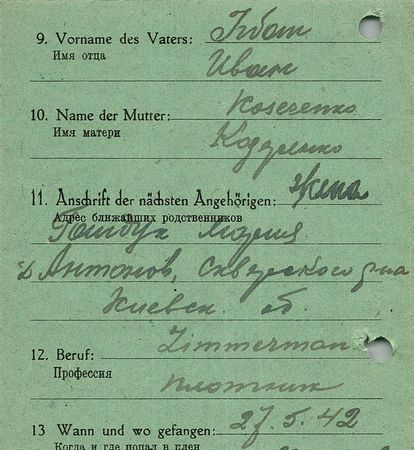 9. Vorname des Vaters:
Имя отца
Иван
10. Name der Mutter:
Имя матери
11. Anschrift der nächsten Angehörigen: жена
Адрес ближайших родственников
Мария
д Антонов, Сквирского р-на
Киевск. об.
12. Beruf: Zimmerman
Профессия плотник
13 Wann und wo gefangen: 27.5.42
Когда и где попал в плен